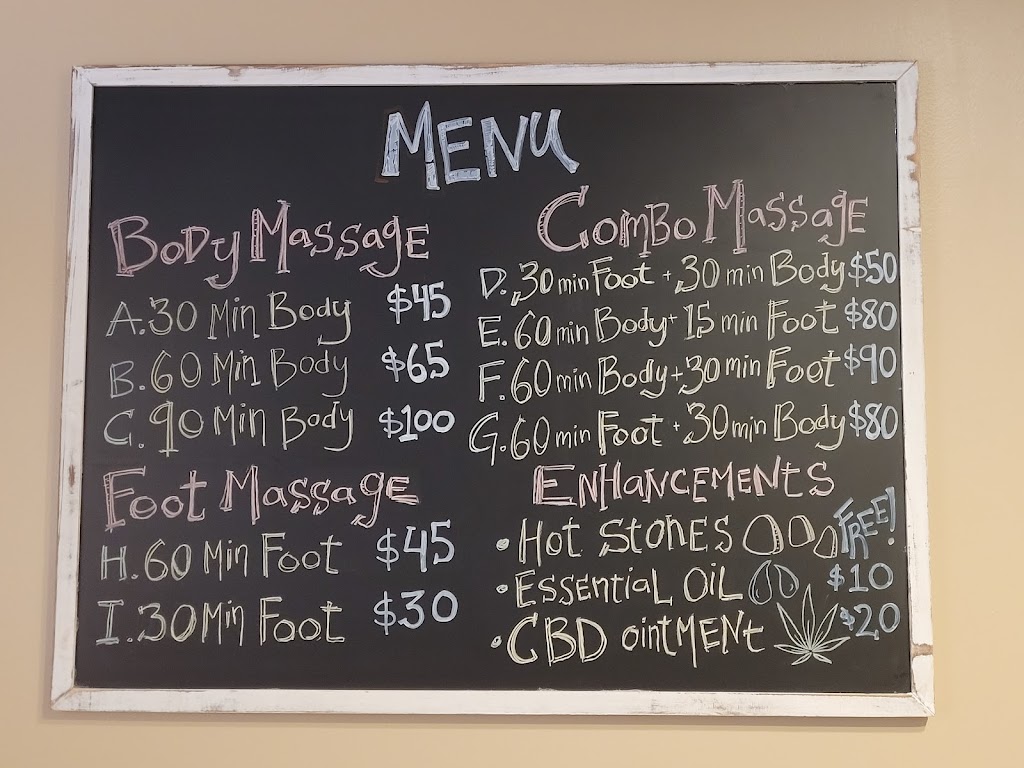 MENU
Body Massage
A. 30 Min Body $45
B. 60 Min Body $65
C. 90 Min Body $100
Foot Massage
H. 60 Min Foot $45
I. 30 Min Foot $30
Combo Massage
D. 30 min Foot + 30 min Body $50
E. 60 min Body + 15 min Foot $80
F. 60 min Body + 30 min Foot $90
G. 60 min Foot + 30 min Body $80
ENHANCEMENTS
• Hot Stones FREE!
• Essential Oil $10
• CBD ointment $20